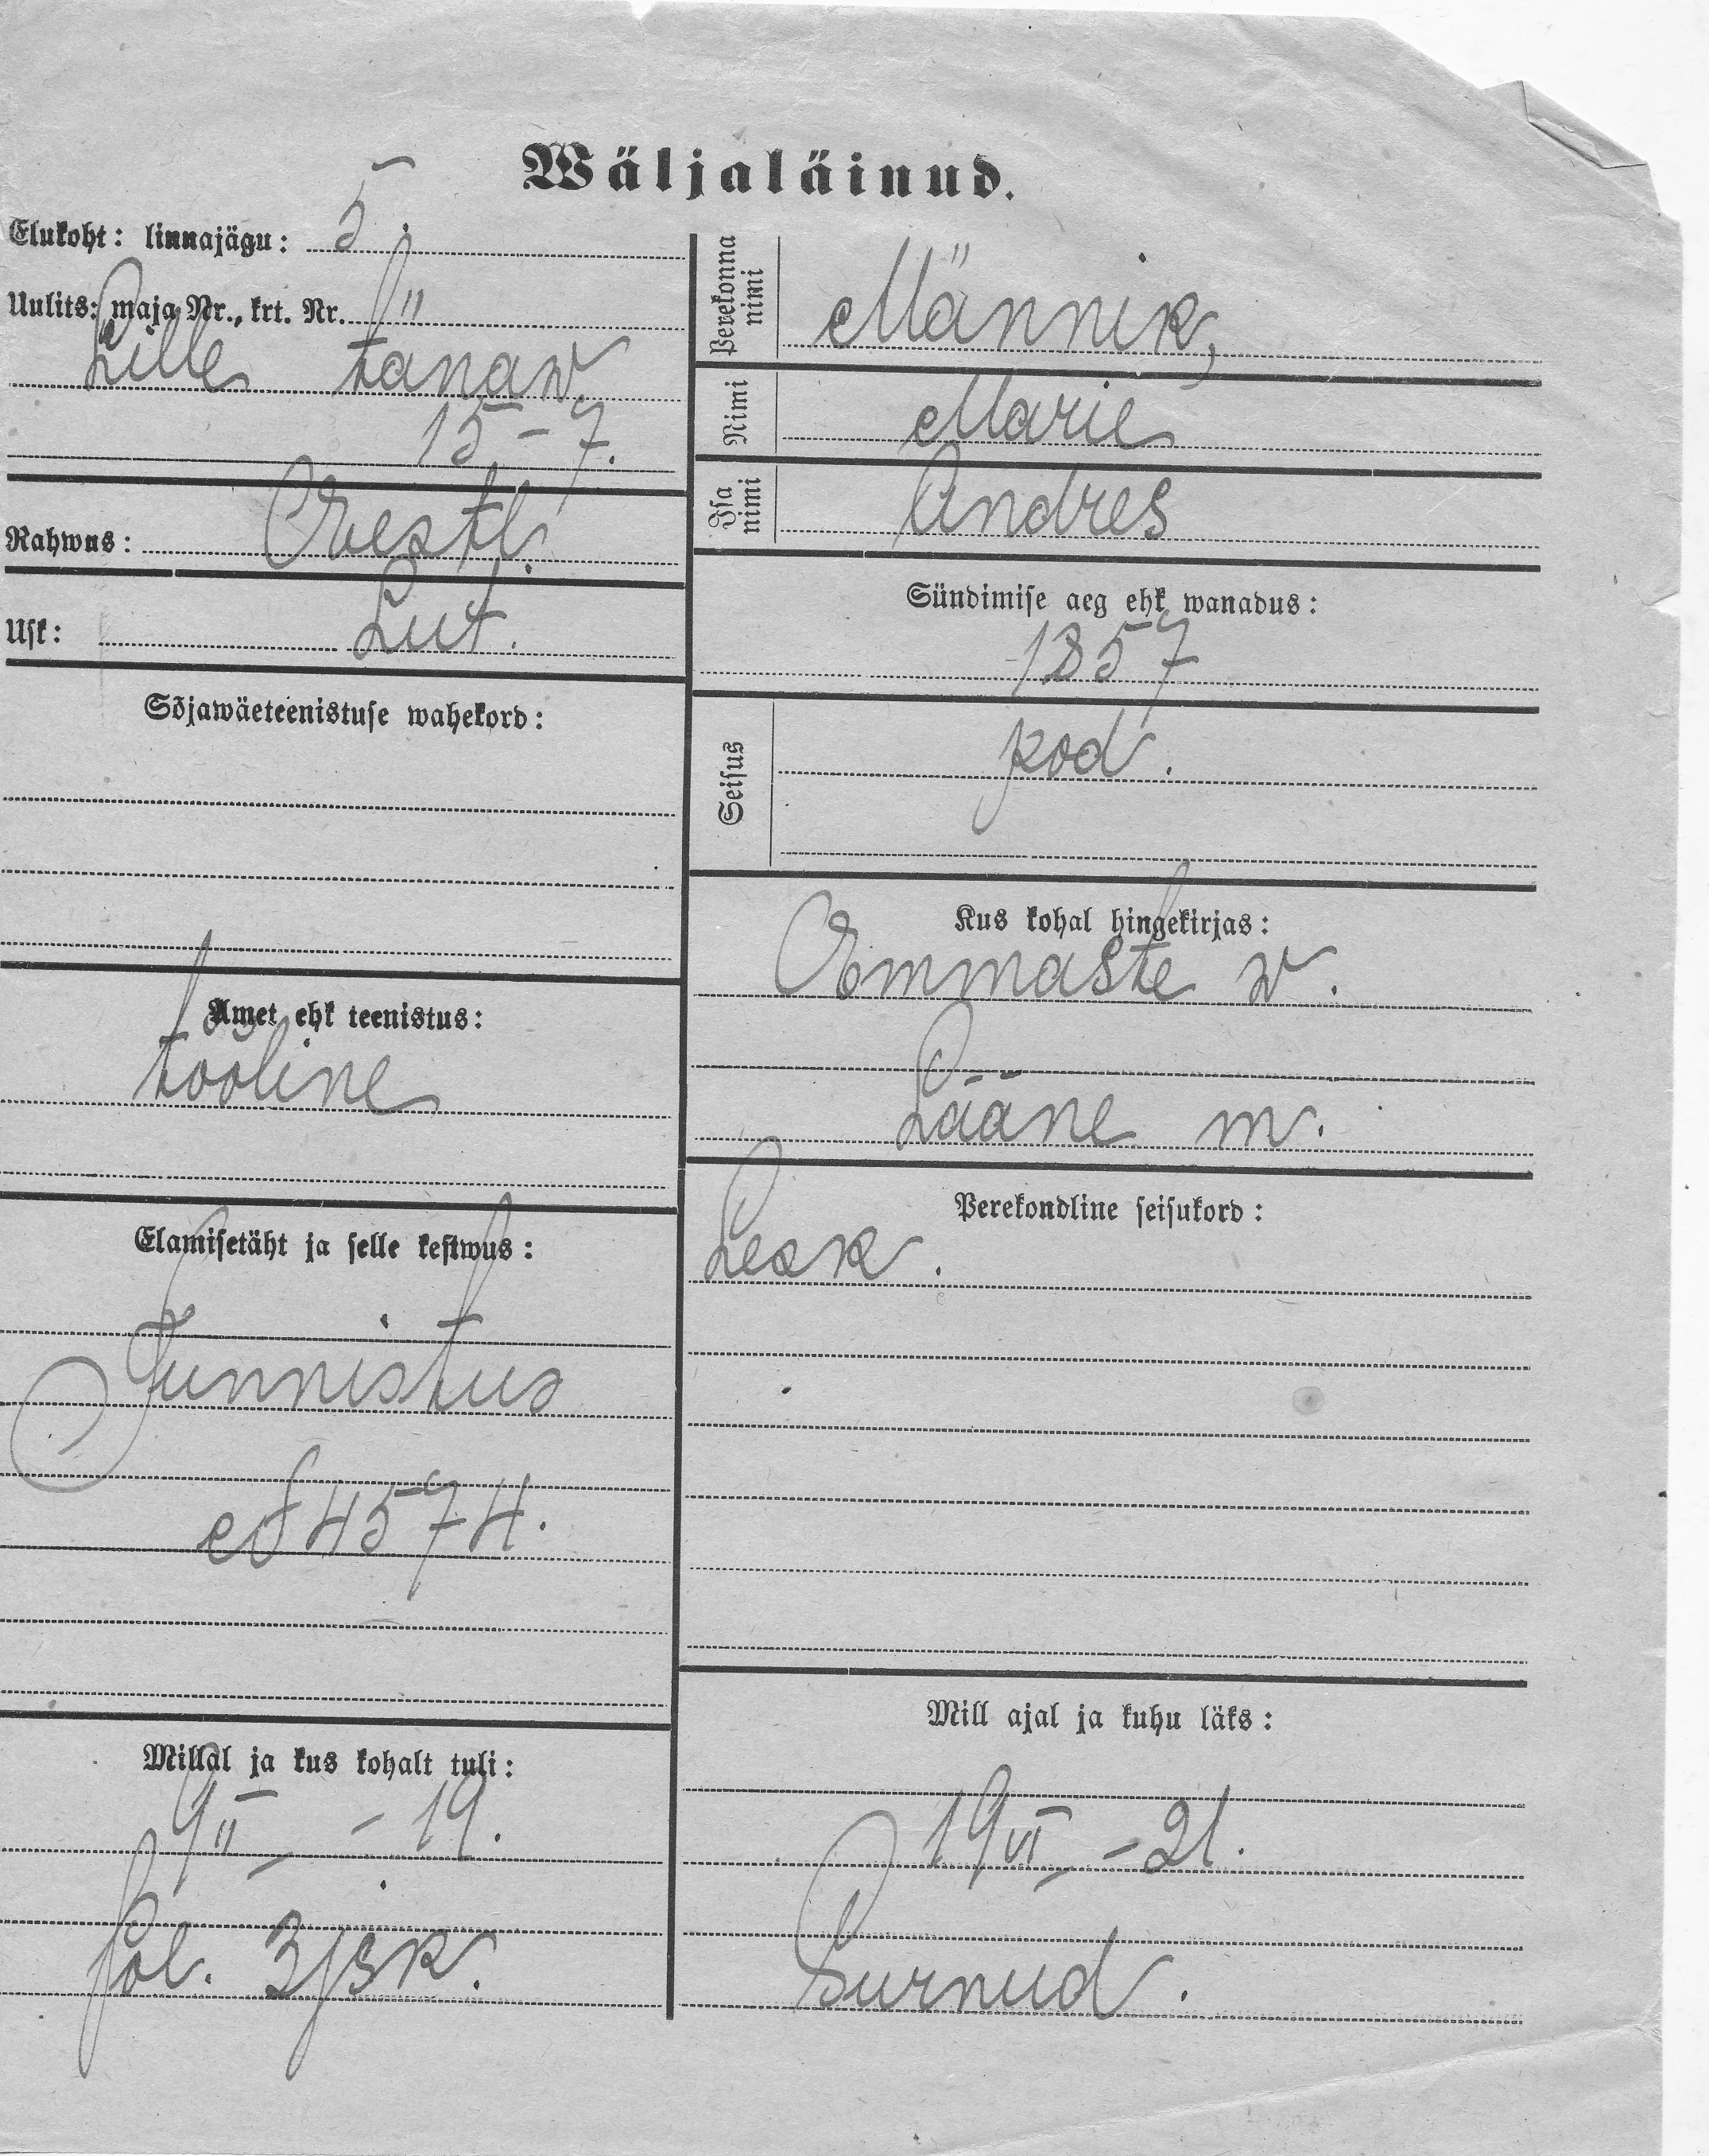 Wäljaläinud.
Elukoht: linnajägu: 5.
Uulits: maja Nr., krt. Nr.
Lille tänaw
15-7.
Rahwus: Eestl.
Usk: Lut.
Sõjawäeteenistuse wahekord:
Amet ehk teenistus:
tööline
Elamisetäht ja selle kestwus:
Tunnistus
№ 4574.
Millal ja kus kohalt tuli:
9 II - 19.
Pol. 3 jsk.
Perekonna nimi Männik,
Nimi Marie
Isa nimi Andres
Sündimise aeg ehk wanadus:
1857
Seisus kod.
Kus kohal hingekirjas:
Emmaste w.
Lääne m.
Perekondline seisukord:
Lesk.
Mill ajal ja kuhu läks:
19 VI - 21.
Surnud.